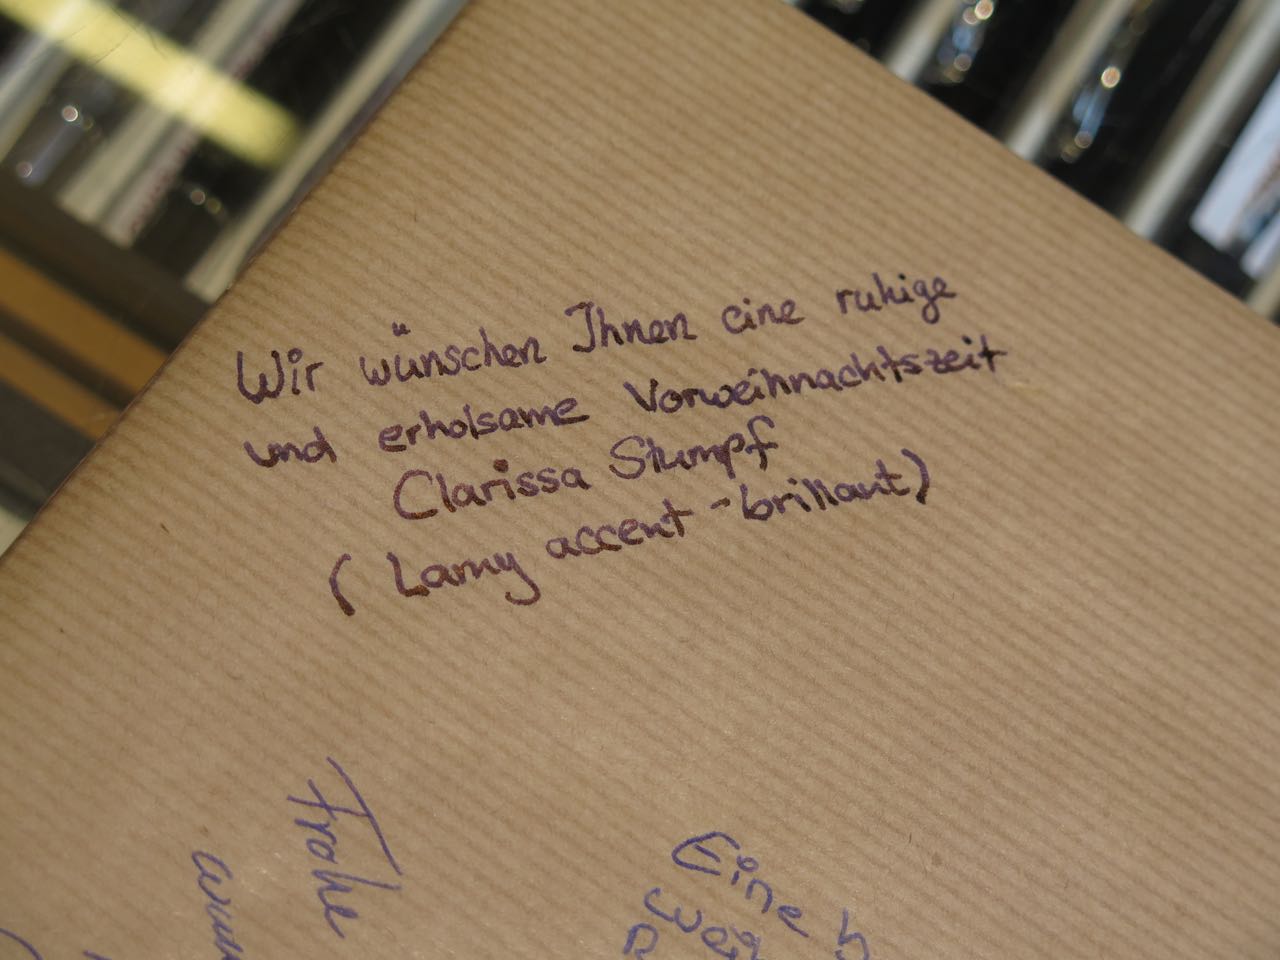 Wir wünschen Ihnen eine ruhige
und erholsame Vorweihnachtszeit
Clarissa Stumpf
( Lamy accent - brillant )
Frohe
Eine